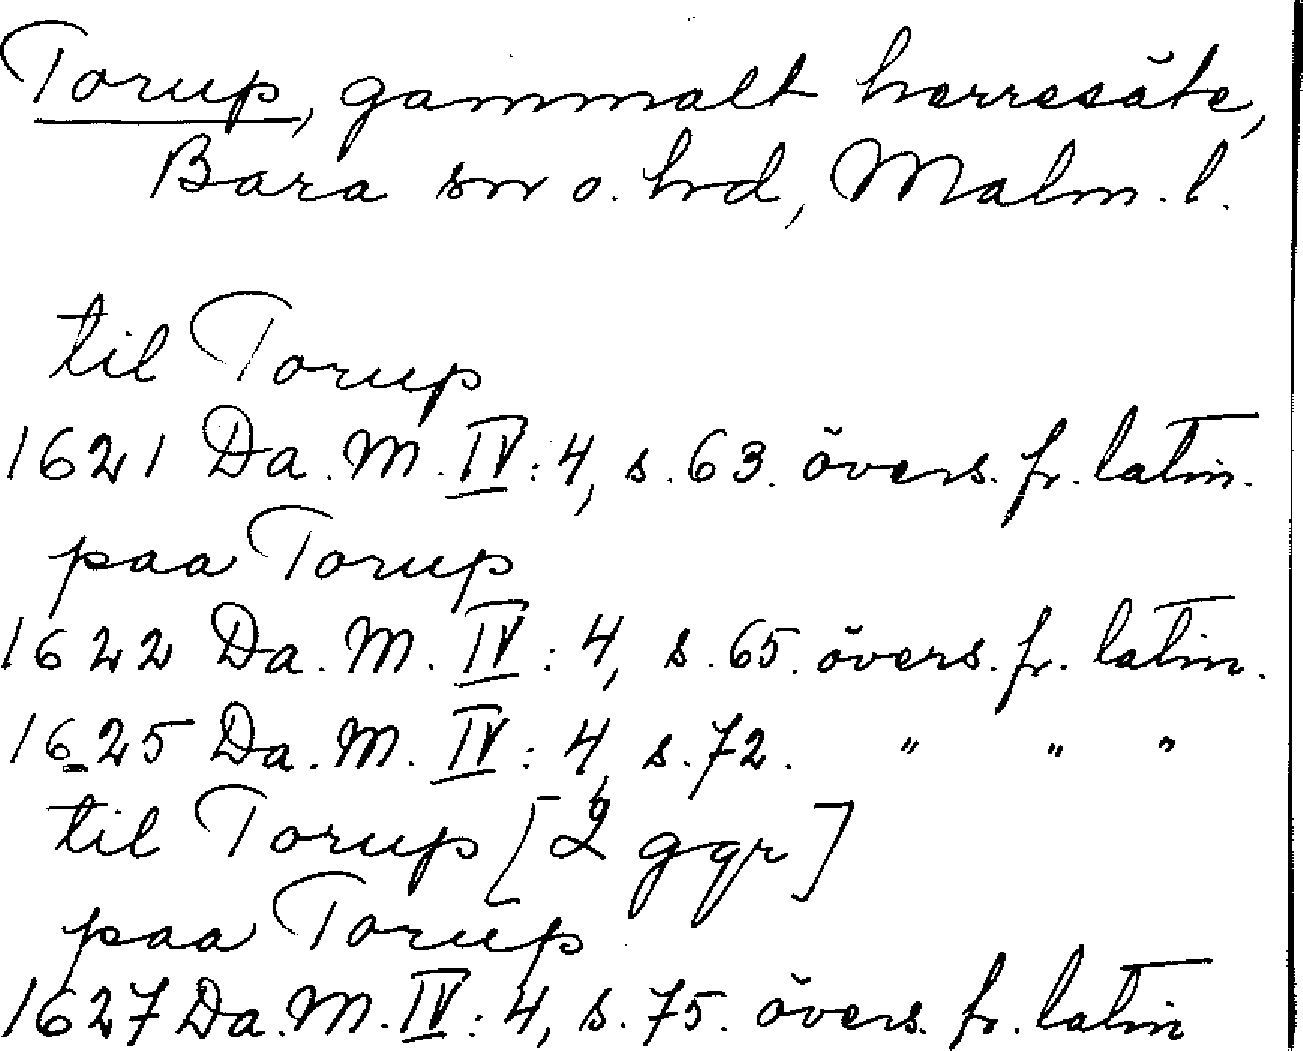 Torup, gammalt herresäte,
Bara sn o. hrd, Malm. l.
til Torup
1621 Da. M. IV: 4, s. 63. övers. fr. latin.
paa Torup
1622 Da. M. IV: 4, s. 65. övers. fr. latin.
1625 Da. M. IV: 4, s. 72. " " "
til Torup [2 ggr]
paa Torup
1627 Da. M. IV: 4, s. 75. övers. fr. latin